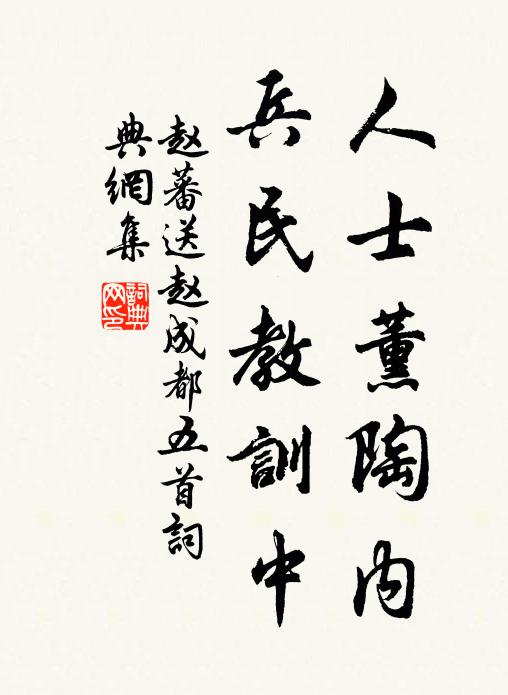 人士薰陶内
兵民教訓中
赵蕃送赵成都五首詞
典網集
詞典网印